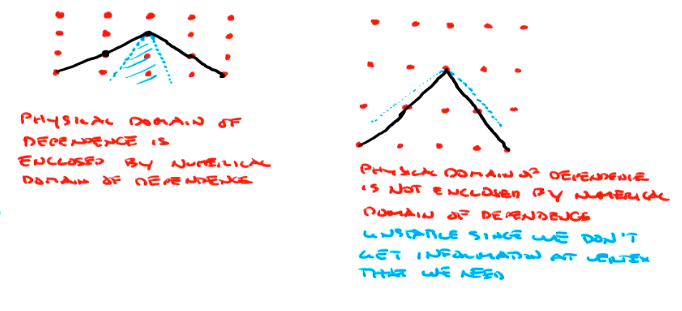 PHYSICAL DOMAIN OF
DEPENDENCE IS
ENCLOSED BY NUMERICAL
DOMAIN OF DEPENDENCE
PHYSICAL DOMAIN OF DEPENDENCE
IS NOT ENCLOSED BY NUMERICAL
DOMAIN OF DEPENDENCE
UNSTABLE SINCE WE DON'T
GET INFORMATION AT VERTEX
THAT WE NEED